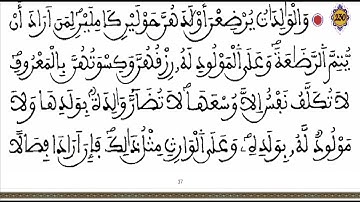 وَالْوَٰلِدَٰتُ يُرْضِعْنَ أَوْلَٰدَهُنَّ حَوْلَيْنِ كَامِلَيْنِ لِمَنْ أَرَادَ أَنْ
يُّتِمَّ اَ۬لرَّضَٰعَةَ وَعَلَى اَ۬لْمَوْلُودِ لَهُۥ رِزْقُهُنَّ وَكِسْوَتُهُنَّ بِالْمَعْرُوفِ
لَا تُكَلَّفُ نَفْسٌ اِلَّا وُسْعَهَا لَا تُضَآرَّ وَٰلِدَةُۢ بِوَلَدِهَا وَلَا
مَوْلُودٌ لَّهُۥ بِوَلَدِهِۦ وَعَلَى اَ۬لْوَارِثِ مِثْلُ ذَٰلِكَ فَإِنَ اَرَادَا فِصَالًا
37